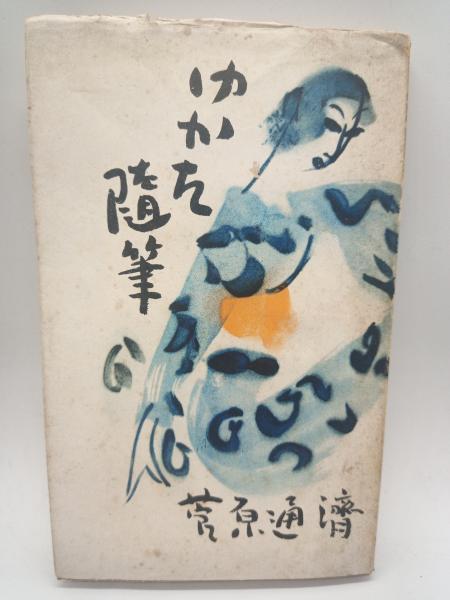 ゆかた
随筆
菅原通濟